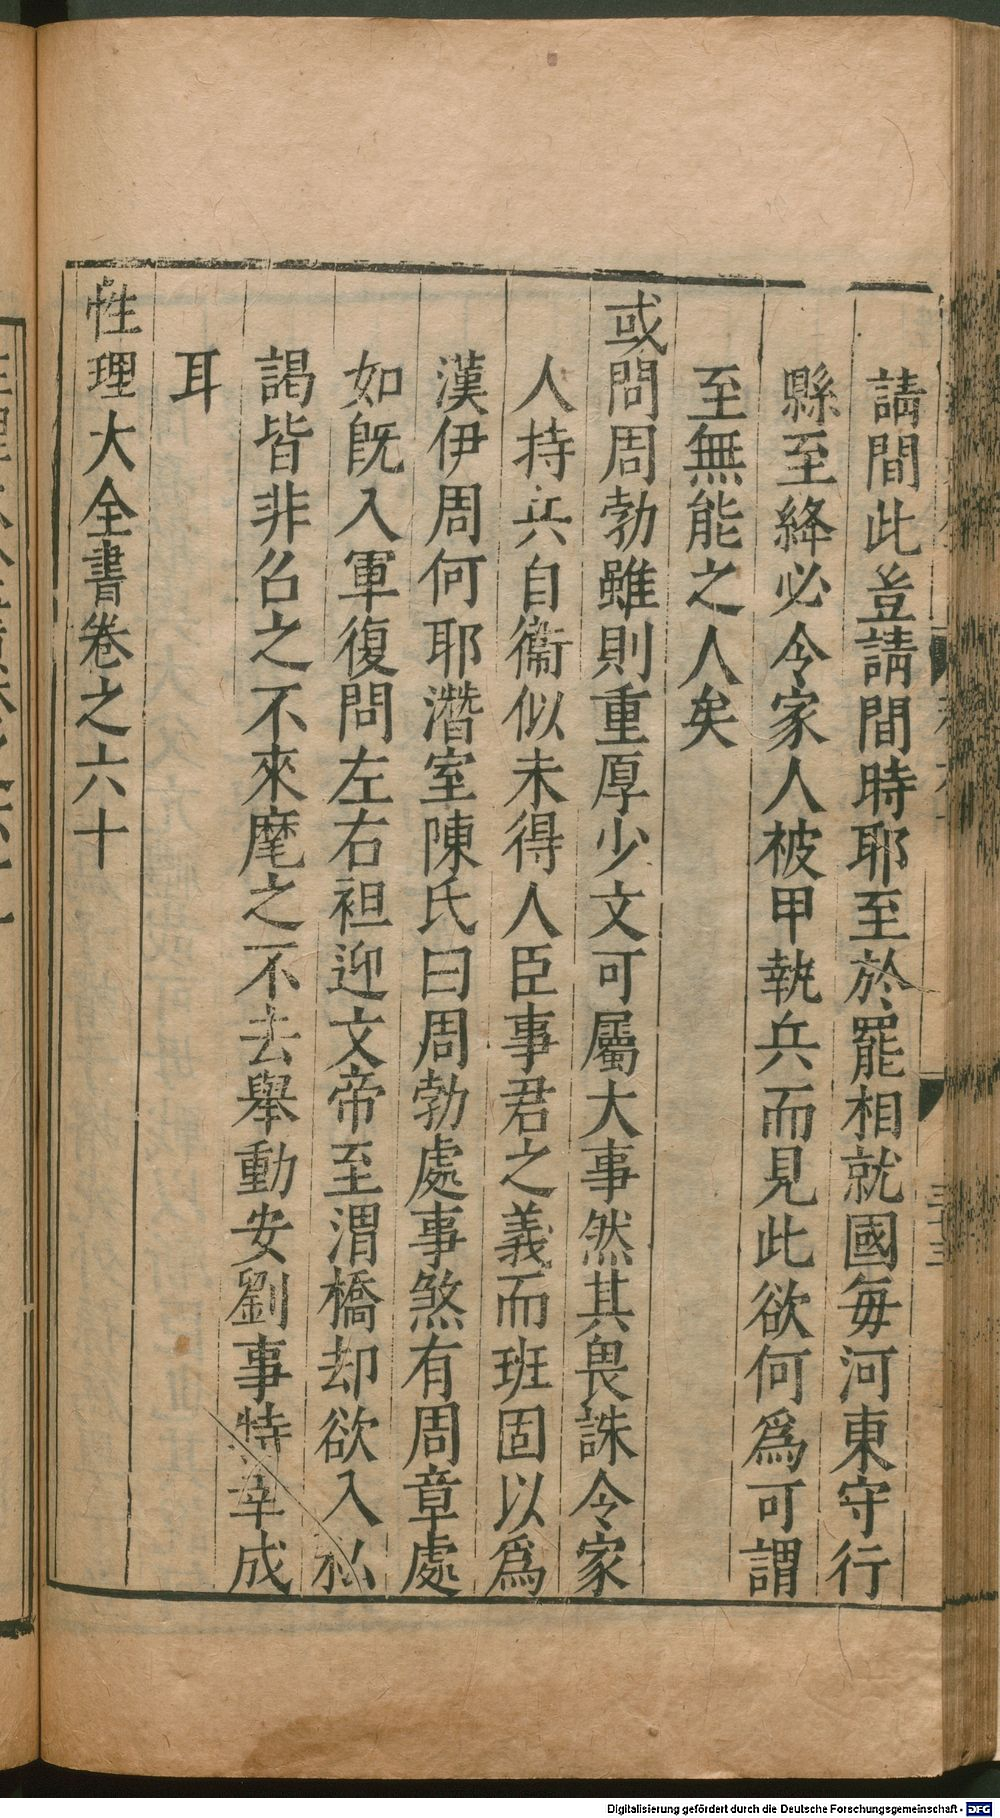 請間此豈請間時耶至於罷相就國每河東守行
縣至絳必令家人被甲執兵而見此欲何爲可謂
至無能之人矣
或問周勃雖則重厚少文可屬大事然其畏誅令家
人持兵自衞似未得人臣事君之義而班固以爲
漢伊周何耶潛室陳氏曰周勃處事煞有周章處
如旣入軍復問左右袒迎文帝至渭橋却欲入私
謁皆非召之不來麾之不去舉動安劉事特幸成
耳
性理大全書卷之六十
三十三
Digitalisierung gefördert durch die Deutsche Forschungsgemeinschaft - DFG